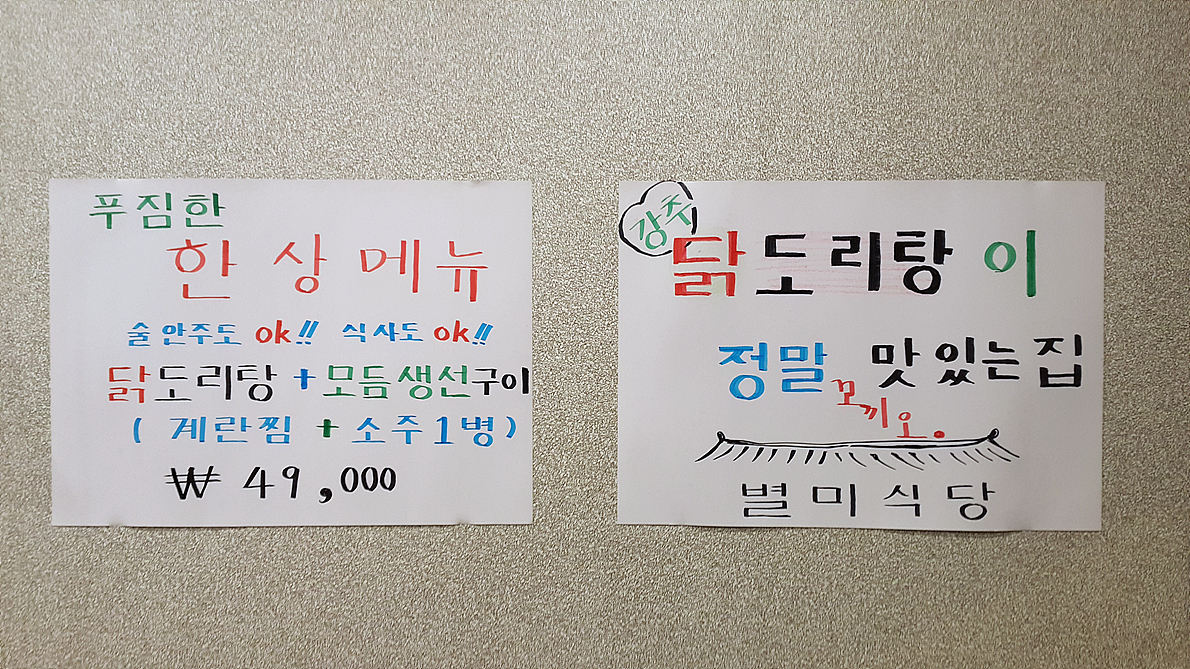 푸짐한
한 상 메뉴
술안주도 ok!! 식사도 ok!!
닭도리탕 + 모듬생선구이
( 계란찜 + 소주1병)
₩ 49,000
강추
닭도리탕 이
정말 맛있는집
꼬끼오.
별미식당